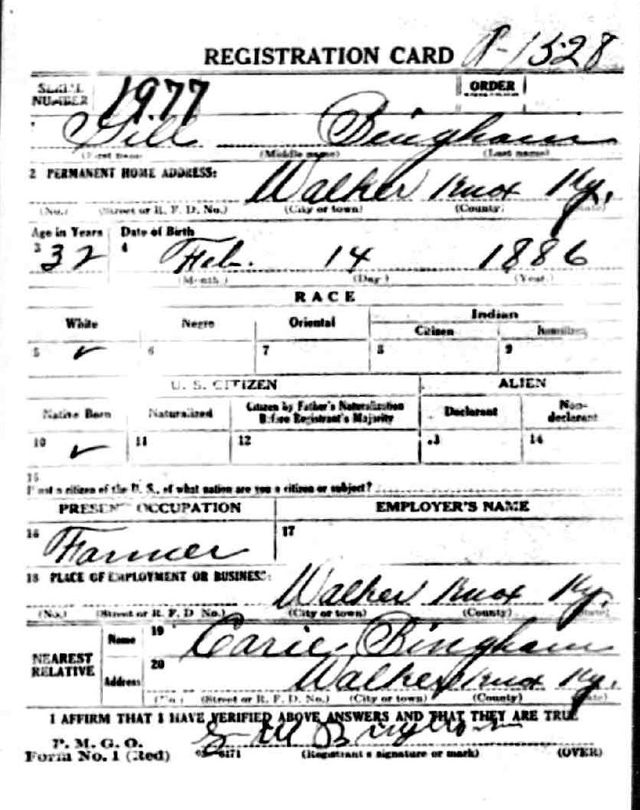 REGISTRATION CARD P-1528
SERIAL NUMBER 1977 ORDER
Gill Bingham
(First name) (Middle name) (Last name)
2 PERMANENT HOME ADDRESS: Walker Knox Ky.
(No.) (Street or R. F. D. No.) (City or town) (County) (State)
Age in Years Date of Birth
3 32 4 Feb. 14 1886
(Month) (Day) (Year)
RACE
White Negro Oriental Indian
Citizen
5 ✓ 6 7 8 9
U. S. CITIZEN ALIEN
Native Born Naturalized Citizen by Father's Naturalization Before Registrant's Majority Declarant Non-declarant
10 ✓ 11 12 13 14
15
If not a citizen of the U. S., of what nation are you a citizen or subject?
PRESENT OCCUPATION EMPLOYER'S NAME
16 Farmer 17
18 PLACE OF EMPLOYMENT OR BUSINESS: Walker Knox Ky.
(No.) (Street or R. F. D. No.) (City or town) (County) (State)
NEAREST RELATIVE Name 19 Carie Bingham
Address 20 Walker Knox Ky.
(No.) (Street or R. F. D. No.) (City or town) (County) (State)
I AFFIRM THAT I HAVE VERIFIED ABOVE ANSWERS AND THAT THEY ARE TRUE
P. M. G. O.
Form No. 1 (Red) Gill Bingham
(Registrant's signature or mark) (OVER)